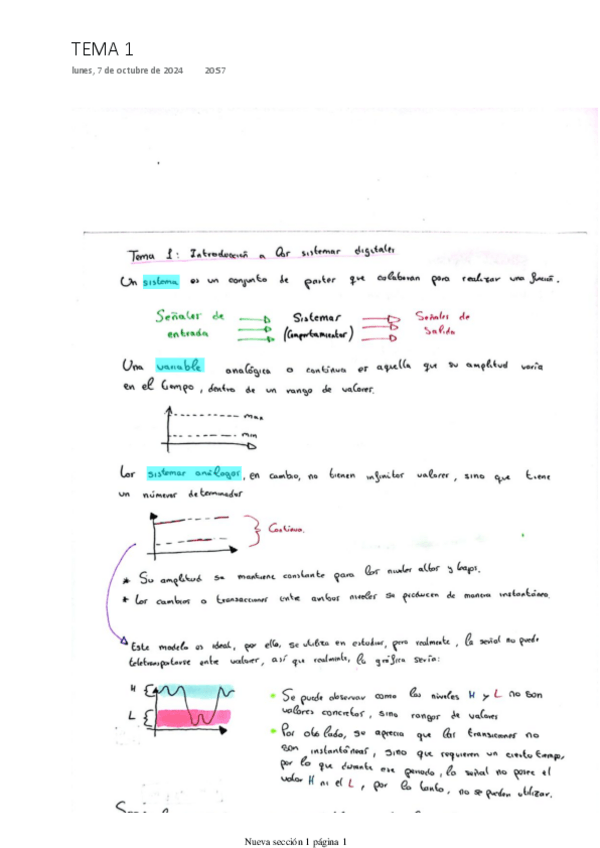 TEMA 1
lunes, 7 de octubre de 2024 20:57
Tema 1: Introducción a los sistemas digitales
Un sistema es un conjunto de partes que colaboran para realizar una función.
Señales de entrada
Sistemas (Comportamientos)
Señales de Salida
Una variable analógica o continua es aquella que su amplitud varía
en el tiempo, dentro de un rango de valores.
max
min
Los sistemas análogos, en cambio, no tienen infinitos valores, sino que tiene
un números determinados
Continua.
* Su amplitud se mantiene constante para los niveles altos y bajos.
* Los cambios o transacciones entre ambos niveles se producen de manera instantánea.
Este modelo es ideal, por ello, se utiliza en estudios, pero realmente, la señal no puede
teletransportarse entre valores, así que realmente, la gráfica sería:
H
L
Se puede observar como los niveles H y L no son
valores concretos, sino rangos de valores
Por otro lado, se aprecia que las transiciones no
son instantáneas, sino que requieren un cierto tiempo,
por lo que durante ese periodo, la señal no posee el
valor H ni el L, por lo tanto, no se pueden utilizar.
Nueva sección 1 página 1